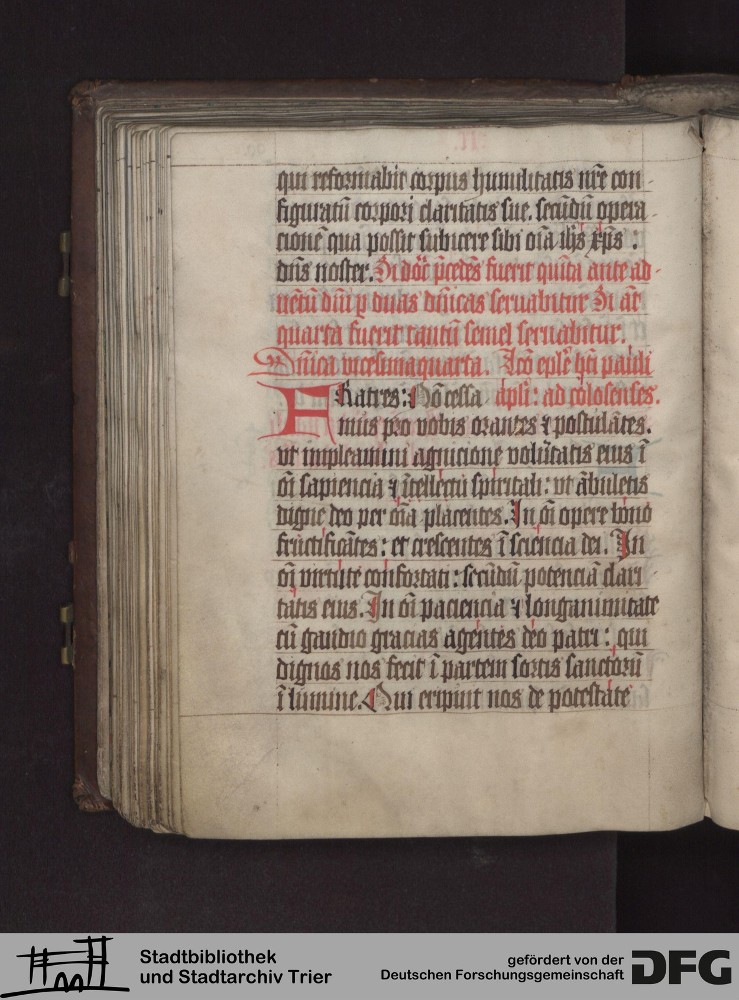 qui reformabit corpus humilitatis nr̄e con-
figuratū corpori claritatis sue. secūdū opera-
cionē qua possit subicere sibi oīa ih̄s xp̄s :
dn̄s noster. Si dō̄c p̄cedēs fuerit quīta ante ad-
uētū dn̄i p̱ duas dn̄icas seruabitur Si aūt
quarta fuerit tantū semel seruabitur.
Dn̄ica vicesimaquarta. Lcō epl̄e bt̄i pauli
FRatres: Nō cessa apl̄i: ad colosenses.
mus pro vobis orantes ⁊ postulātes.
vt impleamini agnicione volūtatis eius ī
oī sapiencia ⁊ ītellectū spiritali: vt ābuletis
digne deo per oīa placentes. In oī opere bono
fructificātes: et crescentes ī sciencia dei. In
oī virtute confortati: secūdū potenciā clari-
tatis eius. In oī paciencia ⁊ longanimitate
cū gaudio gracias agentes deo patri: qui
dignos nos fecit ī partem sortis sanctorū
ī lumine. Qui eripuit nos de potestate
Stadtbibliothek
und Stadtarchiv Trier
gefördert von der
Deutschen Forschungsgemeinschaft
DFG